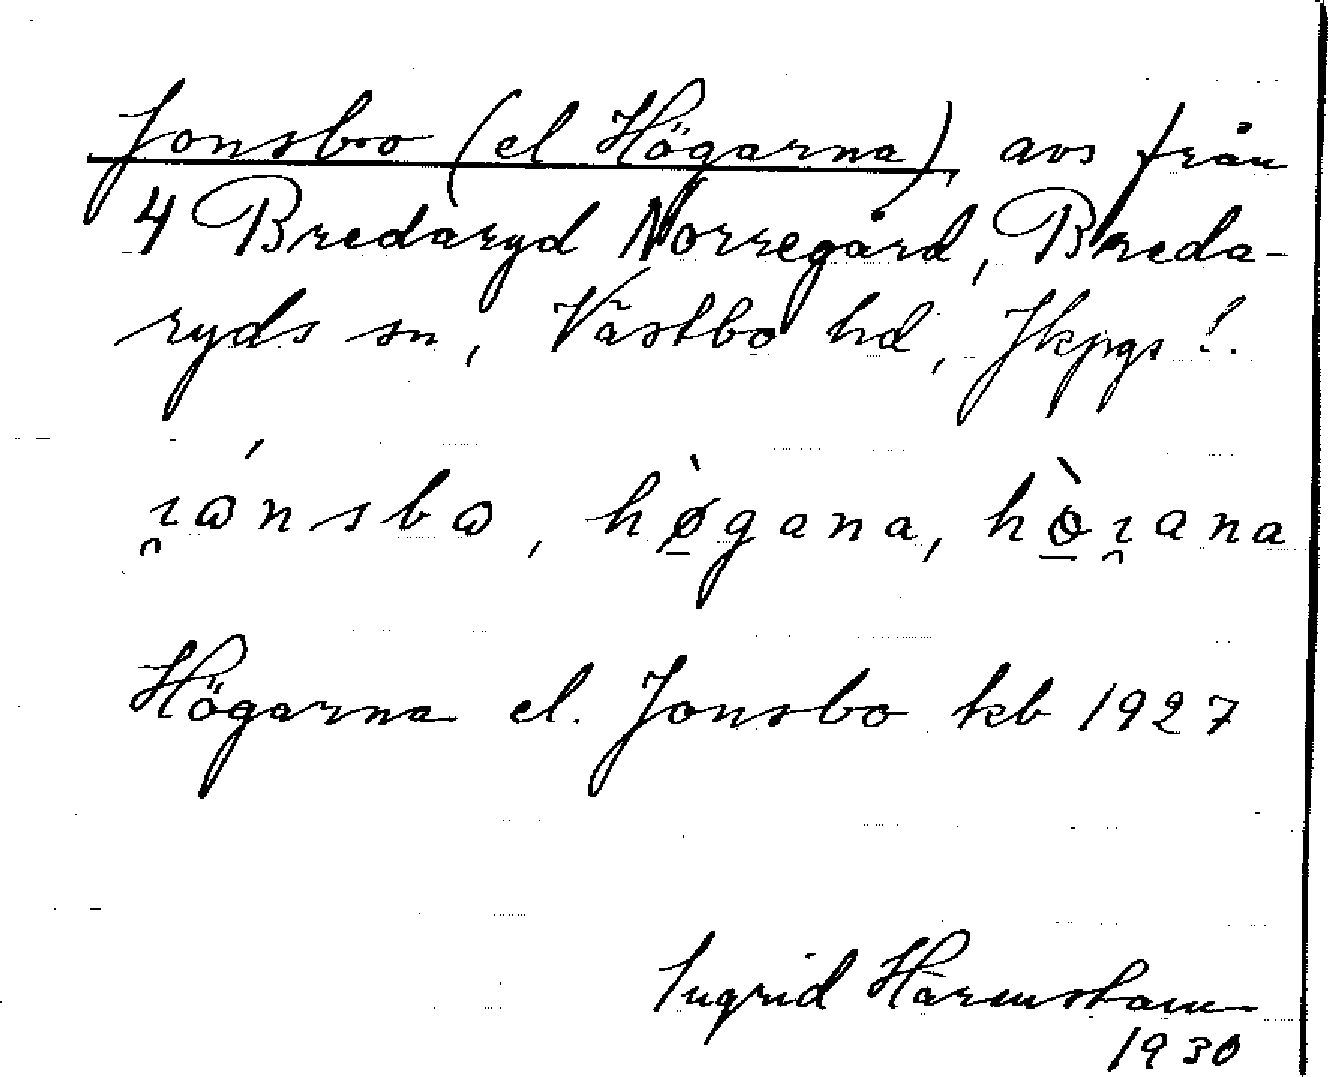 Jonsbo (el Högarna) avs från
4 Bredaryd Norregård, Breda-
ryds sn, Västbo hd, Jkpgs l.
högana,
Högarna el. Jonsbo kb 1927
Ingrid
1930